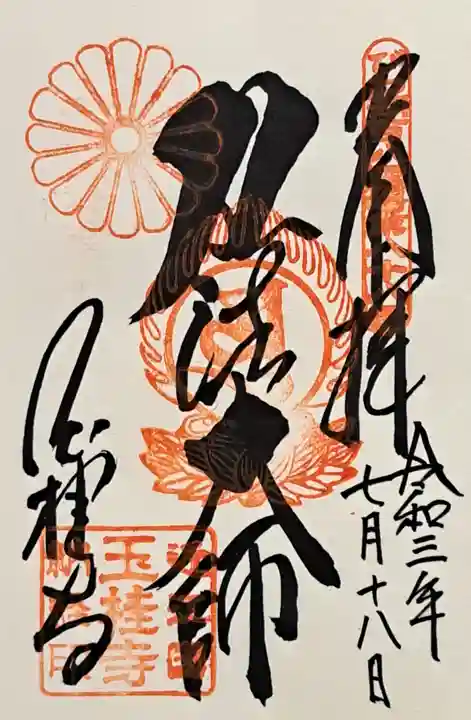 奉拝
令和三年
七月十八日
弘法大師
玉桂寺
玉桂寺